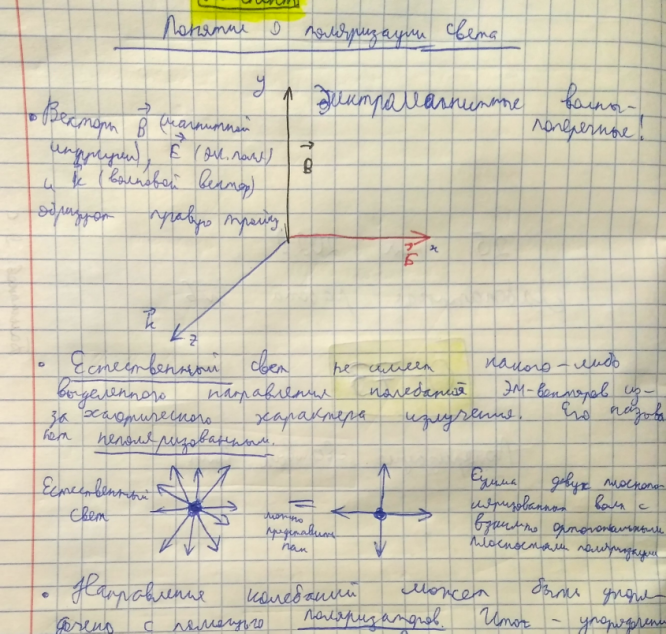 Понятие о поляризации света
y
Электромагнитные волны-
поперечные!
• Векторы B (магнитной
индукции), E (эл. поля)
и k (волновой вектор)
образуют правую тройку.
B
E x
k
z
• Естественный свет не имеет какого-либо
выделенного направления колебаний ЭМ-векторов из-
за хаотического характера излучения. Его называ
ют неполяризованным.
Естественный
свет
=
можно
представить
как
Сумма двух плоскопо-
ляризованных волн с
взаимно ортогональными
плоскостями поляризации
• Направления колебаний может быть упоря-
дочено с помощью поляризаторов. Итог - упорядочен